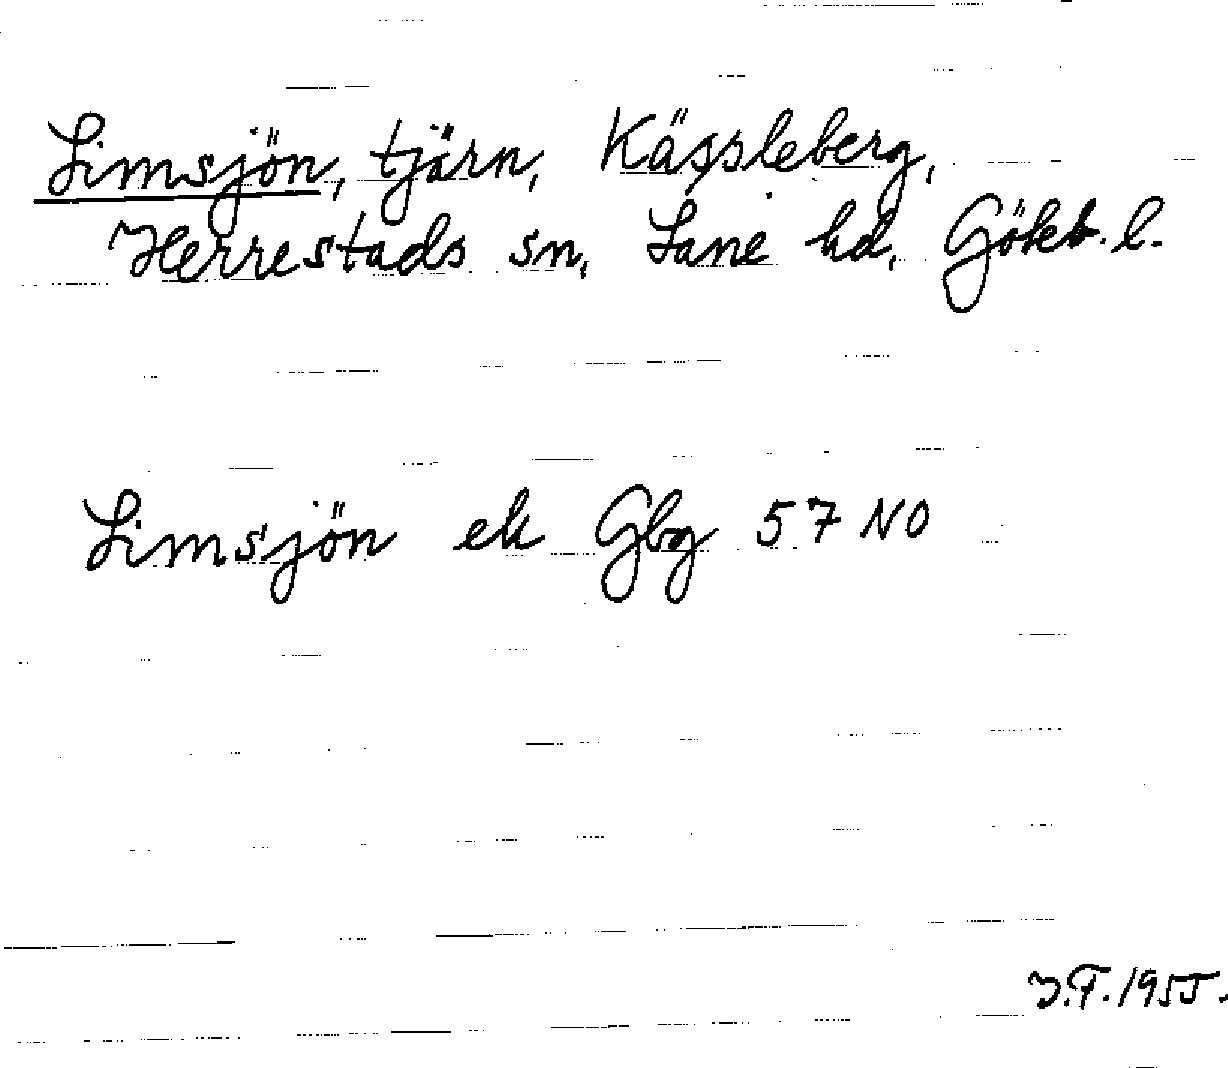 Limsjön, tjärn, Kässleberg,
Herrestads sn, Lane hd, Göteb. l.
Limsjön ek Gbg 57 NO
J.F. 1955.